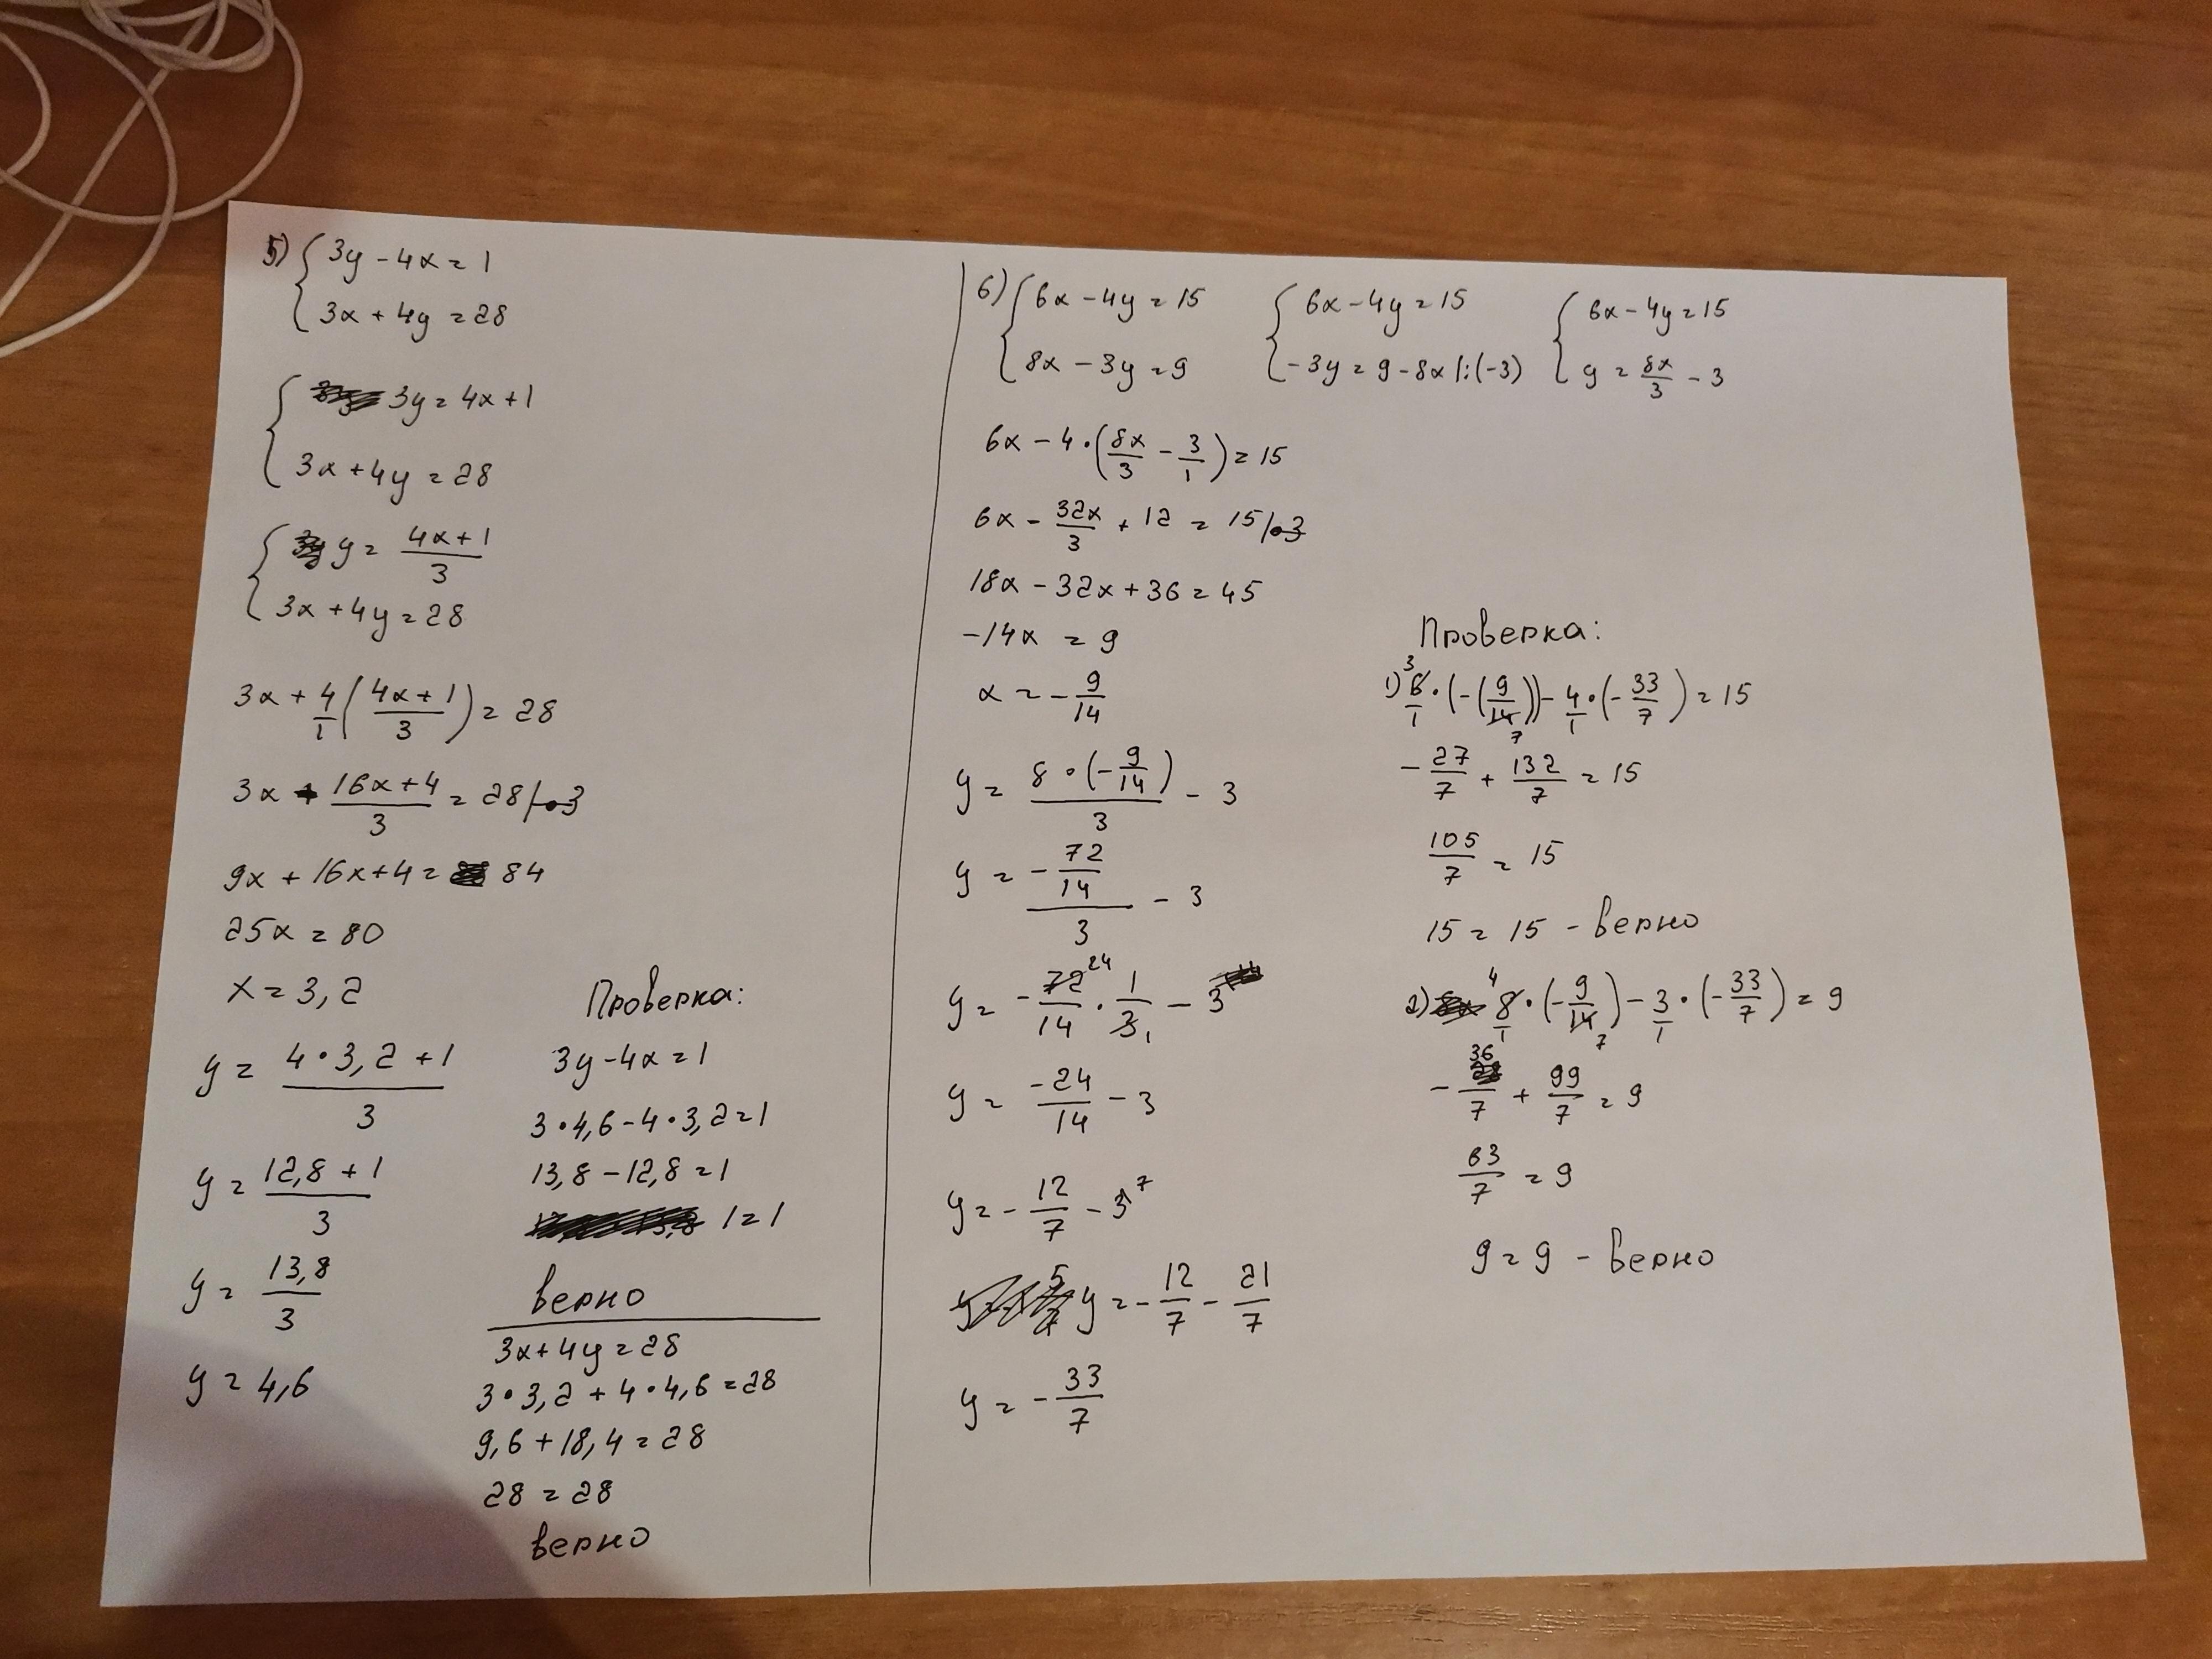 5) { 3y - 4x = 1
3x + 4y = 28
{ 3y = 4x + 1
3x + 4y = 28
{ y = (4x+1)/3
3x + 4y = 28
3x + 4/1 ( (4x+1)/3 ) = 28
3x + (16x+4)/3 = 28 /•3
9x + 16x + 4 = 84
25x = 80
x = 3,2
y = (4•3,2+1)/3
y = (12,8+1)/3
y = 13,8/3
y = 4,6
Проверка:
3y - 4x = 1
3•4,6 - 4•3,2 = 1
13,8 - 12,8 = 1
1 = 1
верно
3x + 4y = 28
3•3,2 + 4•4,6 = 28
9,6 + 18,4 = 28
28 = 28
верно
6) { 6x - 4y = 15 { 6x - 4y = 15 { 6x - 4y = 15
8x - 3y = 9 -3y = 9 - 8x |:(-3) y = 8x/3 - 3
6x - 4•(8x/3 - 3/1) = 15
6x - 32x/3 + 12 = 15 /•3
18x - 32x + 36 = 45
-14x = 9
x = -9/14
y = (8•(-9/14))/3 - 3
y = (-72/14)/3 - 3
y = -72/14 24 • 1/3 1 - 3
y = -24/14 - 3
y = -12/7 - 3 7
y = -12/7 - 21/7
y = -33/7
Проверка:
1) 3 6/1•(-(9/14 7)) - 4/1•(-33/7) = 15
-27/7 + 132/7 = 15
105/7 = 15
15 = 15 - верно
2) 4 8/1•(-9/14 7) - 3/1•(-33/7) = 9
-36/7 + 99/7 = 9
63/7 = 9
9 = 9 - верно